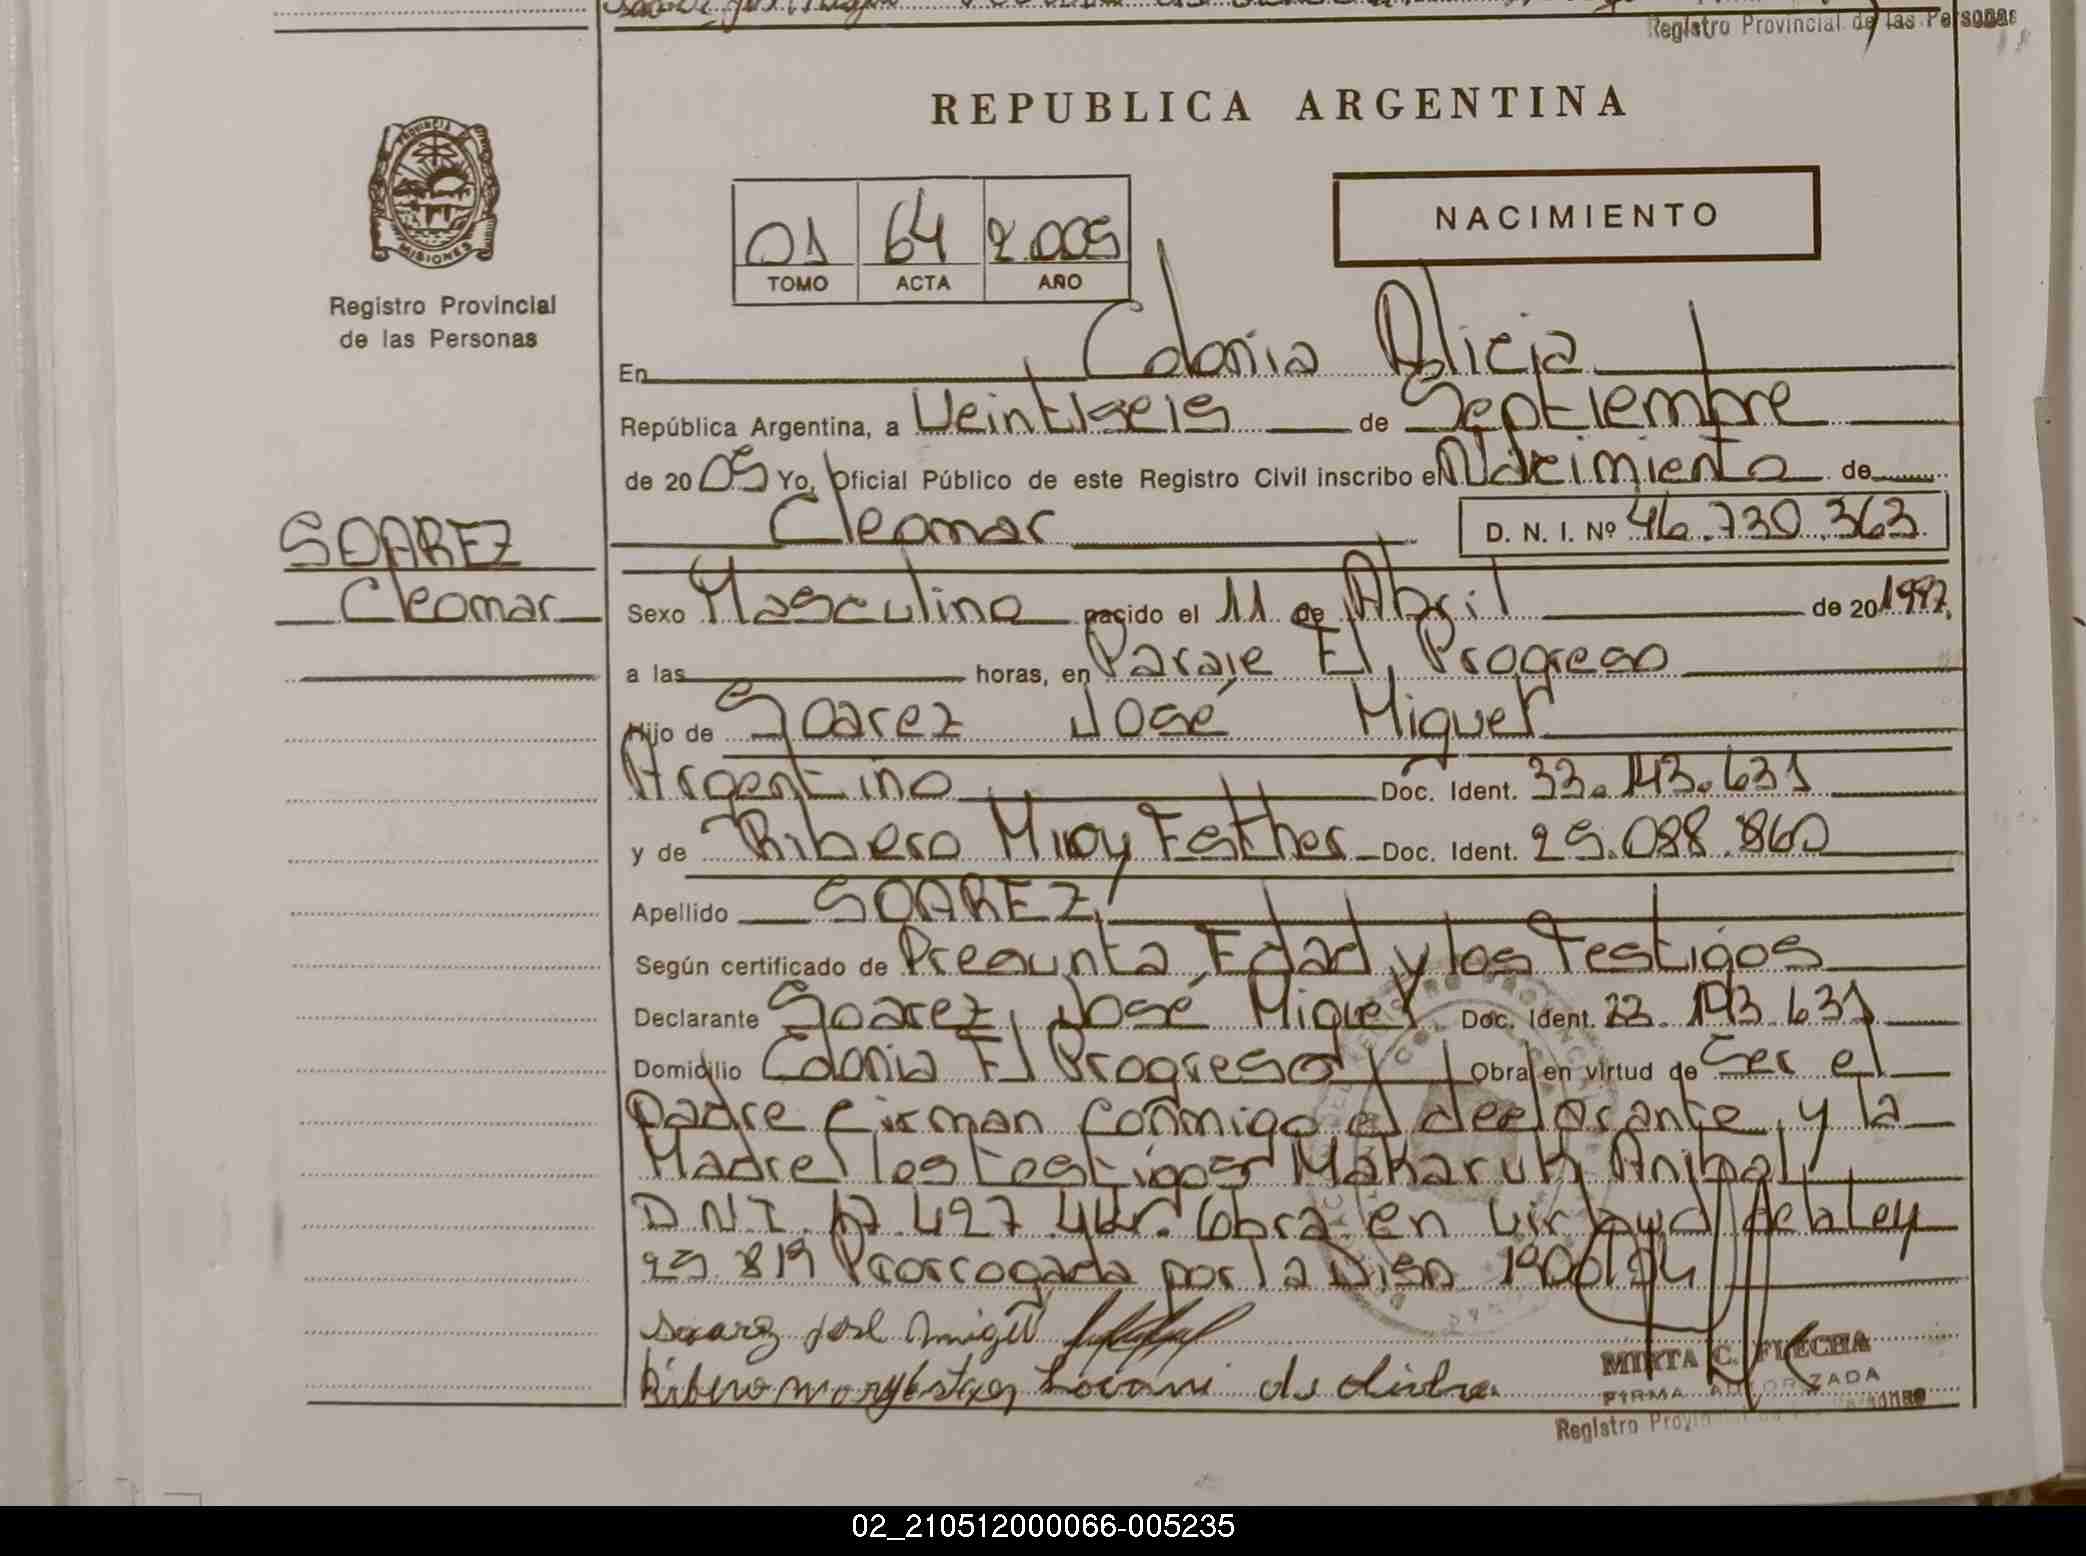 Registro Provincial de las Personas
REPUBLICA ARGENTINA
PROVINCIA DE
MISIONES
Registro Provincial
de las Personas
01 64 2.005
TOMO ACTA AÑO
NACIMIENTO
En Colonia Alicia
República Argentina, a Veintiseis de Septiembre
de 2005 Yo, Oficial Público de este Registro Civil inscribo el Nacimiento de
Cleomar D. N. I. Nº 46.730.363
SOAREZ
Cleomar
Sexo Masculino nacido el 11 de Abril de 20 1997,
a las horas, en Paraje El Progreso
Hijo de Soarez José Miguel
Argentino Doc. Ident. 33.143.631
y de Ribero Miroy Esther Doc. Ident. 29.088.860
Apellido SOAREZ
Según certificado de Presunta Edad y los Testigos
Declarante Soarez José Miguel Doc. Ident. 33.143.631
Domicilio Colonia El Progreso Obra en virtud de Ser el
Padre firman conmigo el declarante y la
Madre los testigos Makaruk Anibal
D.N.I. 17.427. Obra en virtud de la Ley
25.819 Prorrogada por la
Soarez José Migel
Ribero
MIRTA C. FLECHA
FIRMA AUTORIZADA
Registro Provincial de las Personas
02_210512000066-005235